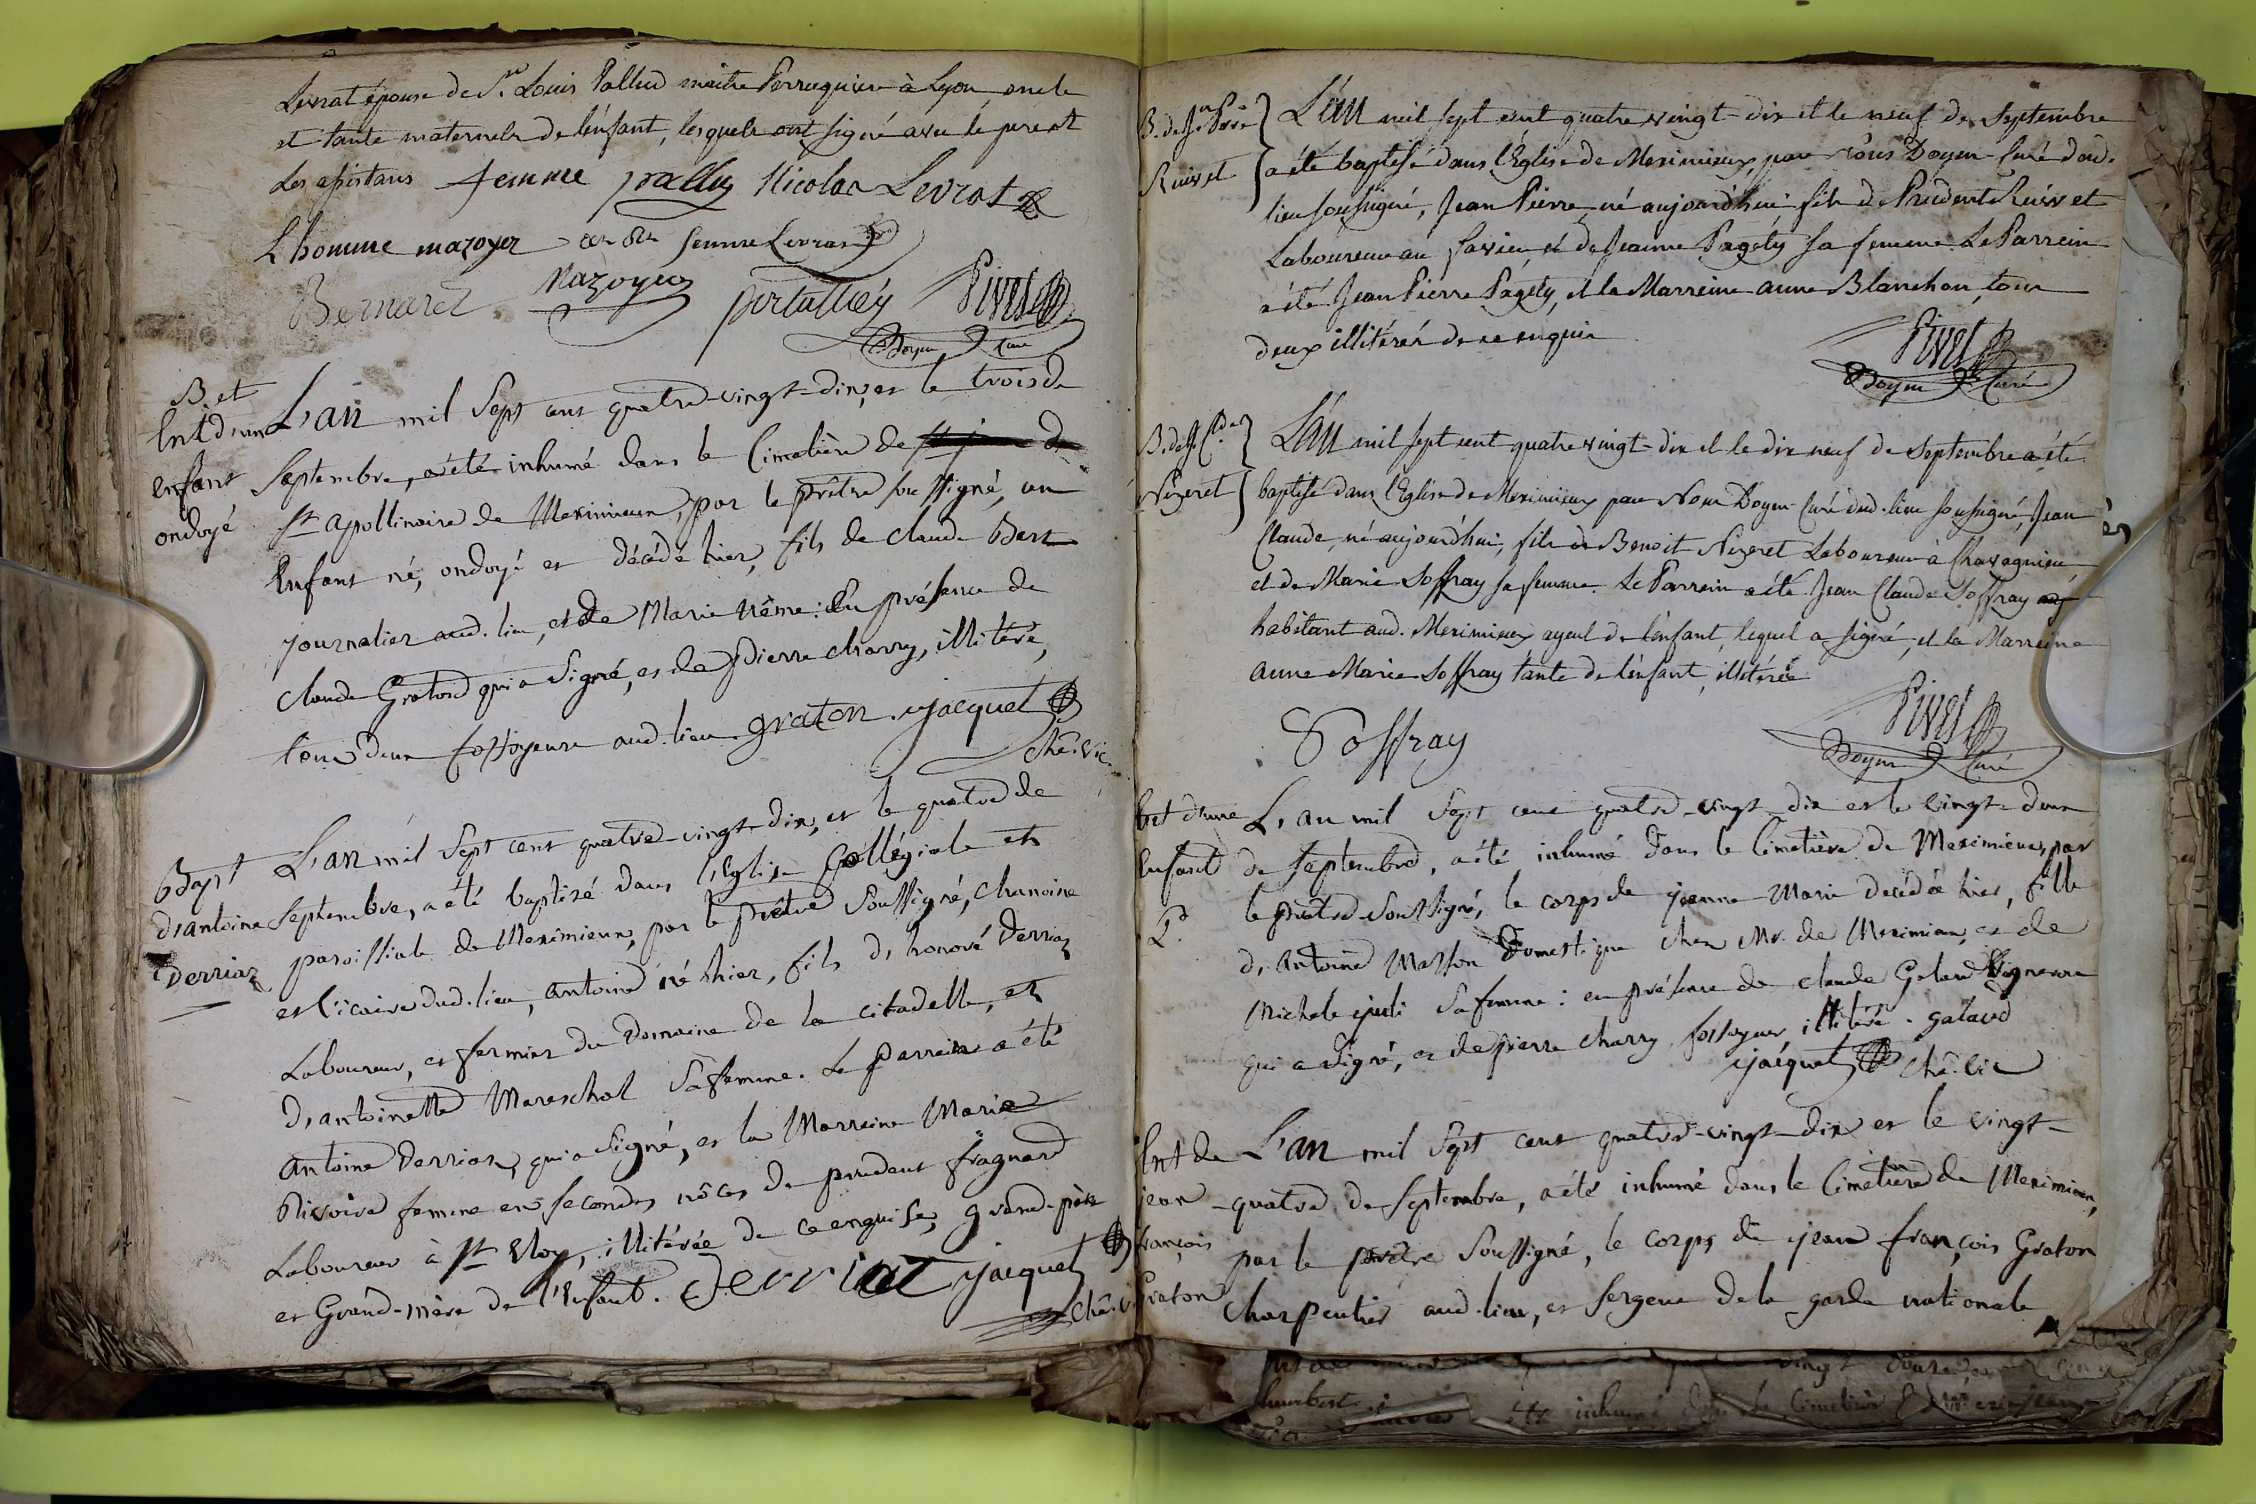 Levrat épouse de Sr. Louis Pallud maitre Perruquier à Lyon oncle
et tante maternels de l'enfant, lesquels ont signé avec le pere et
les assistans femme pallus Nicolas Levrat
L'homme mazoyer femme Levrat
Bernard Mazoyer portallier Pivet
Doyen Curé
B et
Ent d'un
enfant
ondoyé
L'an mil Sept cent quatre-vingt-dix, et le trois de
Septembre, a été inhumé dans le Cimetière de
St apollinaire de Meximieux, par le prêtre soussigné, un
Enfant né, ondoyé et décédé hier, fils de claude Bert
journalier aud. lieu, et de Marie Nême : En présence de
claude Graton qui a Signé, et de pierre charry, illitéré,
tous deux fossoyeurs aud. lieu. graton . jacquet
Chne. Vic.
Bapt
d'antoine
Derriaz
L'an mil Sept cent quatre-vingt-dix, et le quatre de
Septembre, a été baptisé dans l'Eglise Collégiale et
paroissiale de Meximieux, par le prêtre Soussigné, chanoine
et Vicaire dud. lieu, antoine né hier, fils d'honoré Derriaz
Laboureur, et fermier du Domaine de la citadelle, et
d'antoinette Mareschal Sa femme. Le parrain a été
antoine Derriaz, qui a Signé, et la Marraine Marie
Rivoire femme en secondes nôces de prudent fragnard
Laboureur à St Eloy, illitérée de ce enquise, grand-père
et Grand-mère de l'Enfant. Derriaz jacquet
Chne. Vi
B. de Jn Pre
Ruivet
L'an mil sept cent quatre vingt-dix et le neuf de Septembre
a été baptisé dans l'Eglise de Meximieux, par Nous Doyen Curé dud.
lieu soussigné, Jean Pierre, né aujourd'hui, fils de Prudent Ruivet
Laboureur au , et de Jeanne Pagety sa femme. Le Parrein
a été Jean Pierre Pagety, et la Marreine anne Blanchon, tous
deux illitérés de ce enquis
Pivet
Doyen Curé
B. de J. Cl.de
Nizeret
L'an mil sept cent quatre vingt-dix et le dix neuf de Septembre a été
baptisé dans l'Eglise de Meximieux par Nous Doyen Curé dud. lieu soussigné, Jean
Claude, né aujourd'hui, fils de Benoit Nizeret Laboureur à Chavagnieu,
et de Marie Soffray sa femme. Le Parrein a été Jean Claude Soffray
habitant aud. Meximieux ayeul de l'enfant, lequel a signé, et la Marreine
anne Marie Soffray tante de l'enfant, illitérée
Soffray
Pivet
Doyen Curé
Ent d'une
Enfant
L'an mil Sept cent quatre-vingt-dix et le vingt-deux
de Septembre, a été inhumé dans le Cimetière de Meximieux, par
le prêtre Soussigné, le corps de jeanne-Marie décédée hier, fille
d'antoine Masson Domestique chez Mr. de Meximieux, et de
Michele Sa femme : en présence de claude Galand Vigneron
qui a signé, et de pierre charry fossoyeur illitéré . galand
jacquet Chne. Vic
Ent de
jean
françois
Graton
L'an mil Sept cent quatre-vingt-dix et le vingt-
quatre de Septembre, a été inhumé dans le Cimetière de Meximieux,
par le prêtre Soussigné, le corps de jean françois Graton
charpentier aud. lieu, et sergent de la garde nationale